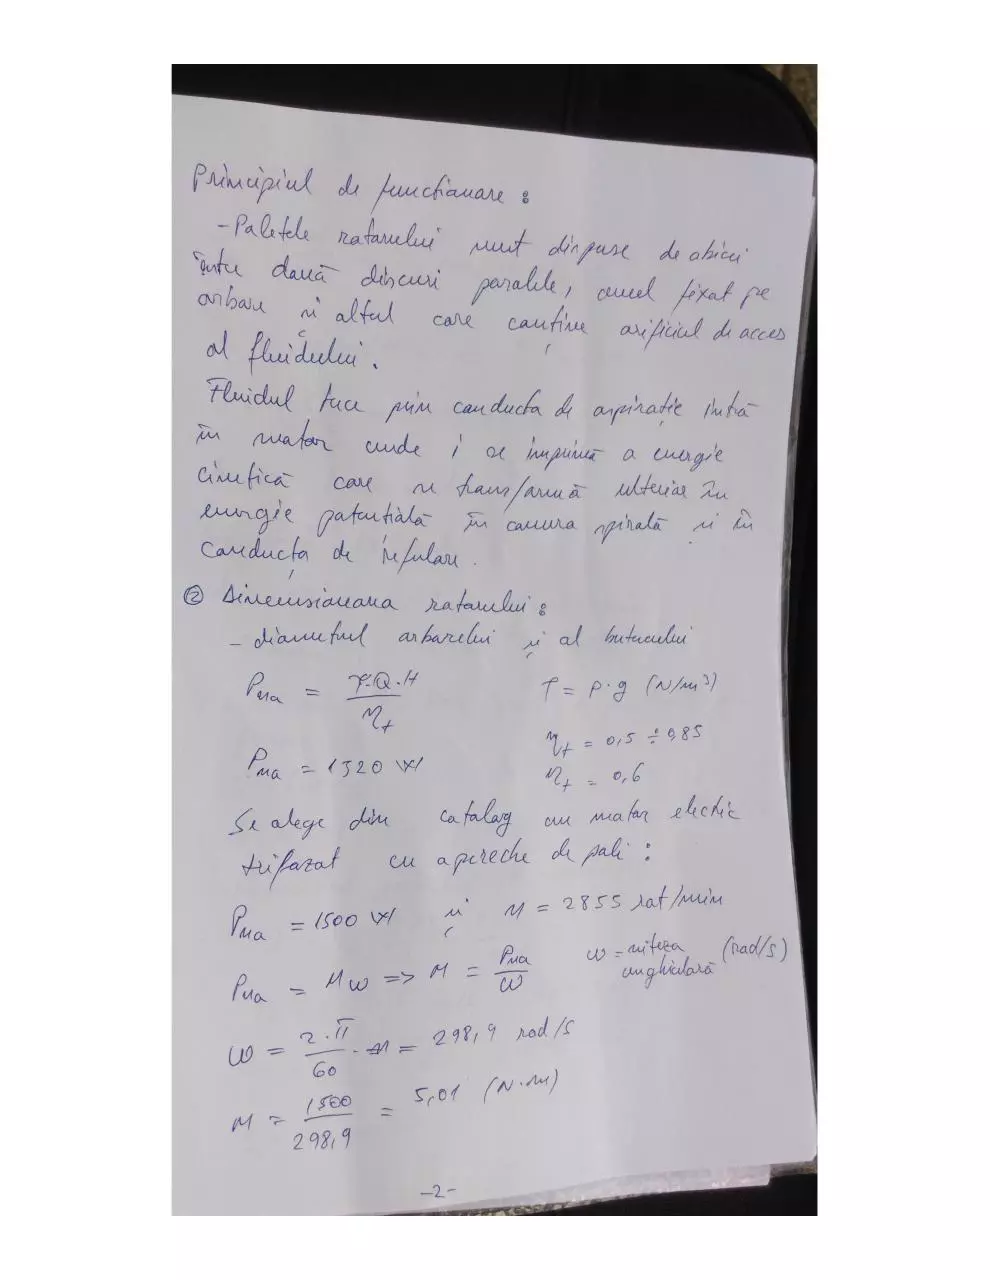 Principiul de functionare :
- Paletele rotorului sunt dispuse de obicei
între două discuri paralele, unul fixat pe
arbore și altul care conține orificiul de acces
al fluidului.
Fluidul trece prin conducta de aspirație intră
în motor unde i se imprimă o energie
cinetică care se transformă ulterior în
energie potențială în camera spirală și în
conducta de refulare.
② Dimensionarea rotorului :
- diametrul arborelui și al butucului
Pma = γ·Q·H / ηt    γ = ρ·g (N/m³)
ηt = 0,5 ÷ 0,85
Pma = 1320 W    ηt = 0,6
Se alege din catalog un motor electric
trifazat cu o pereche de poli :
Pma = 1500 W și n = 2855 rot/min
Pma = Mω => M = Pma / ω    ω = viteza unghiulară (rad/s)
ω = 2·π / 60 · n = 298,9 rad/s
M = 1500 / 298,9 = 5,01 (N·m)
-2-